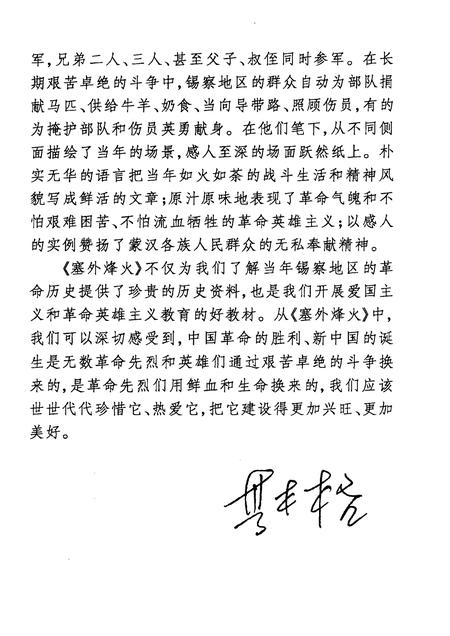 军，兄弟二人、三人、甚至父子、叔侄同时参军。在长
期艰苦卓绝的斗争中，锡察地区的群众自动为部队捐
献马匹、供给牛羊、奶食、当向导带路、照顾伤员，有的
为掩护部队和伤员英勇献身。在他们笔下，从不同侧
面描绘了当年的场景，感人至深的场面跃然纸上。朴
实无华的语言把当年如火如荼的战斗生活和精神风
貌写成鲜活的文章；原汁原味地表现了革命气魄和不
怕艰难困苦、不怕流血牺牲的革命英雄主义；以感人
的实例赞扬了蒙汉各族人民群众的无私奉献精神。
《塞外烽火》不仅为我们了解当年锡察地区的革
命历史提供了珍贵的历史资料，也是我们开展爱国主
义和革命英雄主义教育的好教材。从《塞外烽火》中，
我们可以深切感受到，中国革命的胜利、新中国的诞
生是无数革命先烈和英雄们通过艰苦卓绝的斗争换
来的，是革命先烈们用鲜血和生命换来的，我们应该
世世代代珍惜它、热爱它，把它建设得更加兴旺、更加
美好。